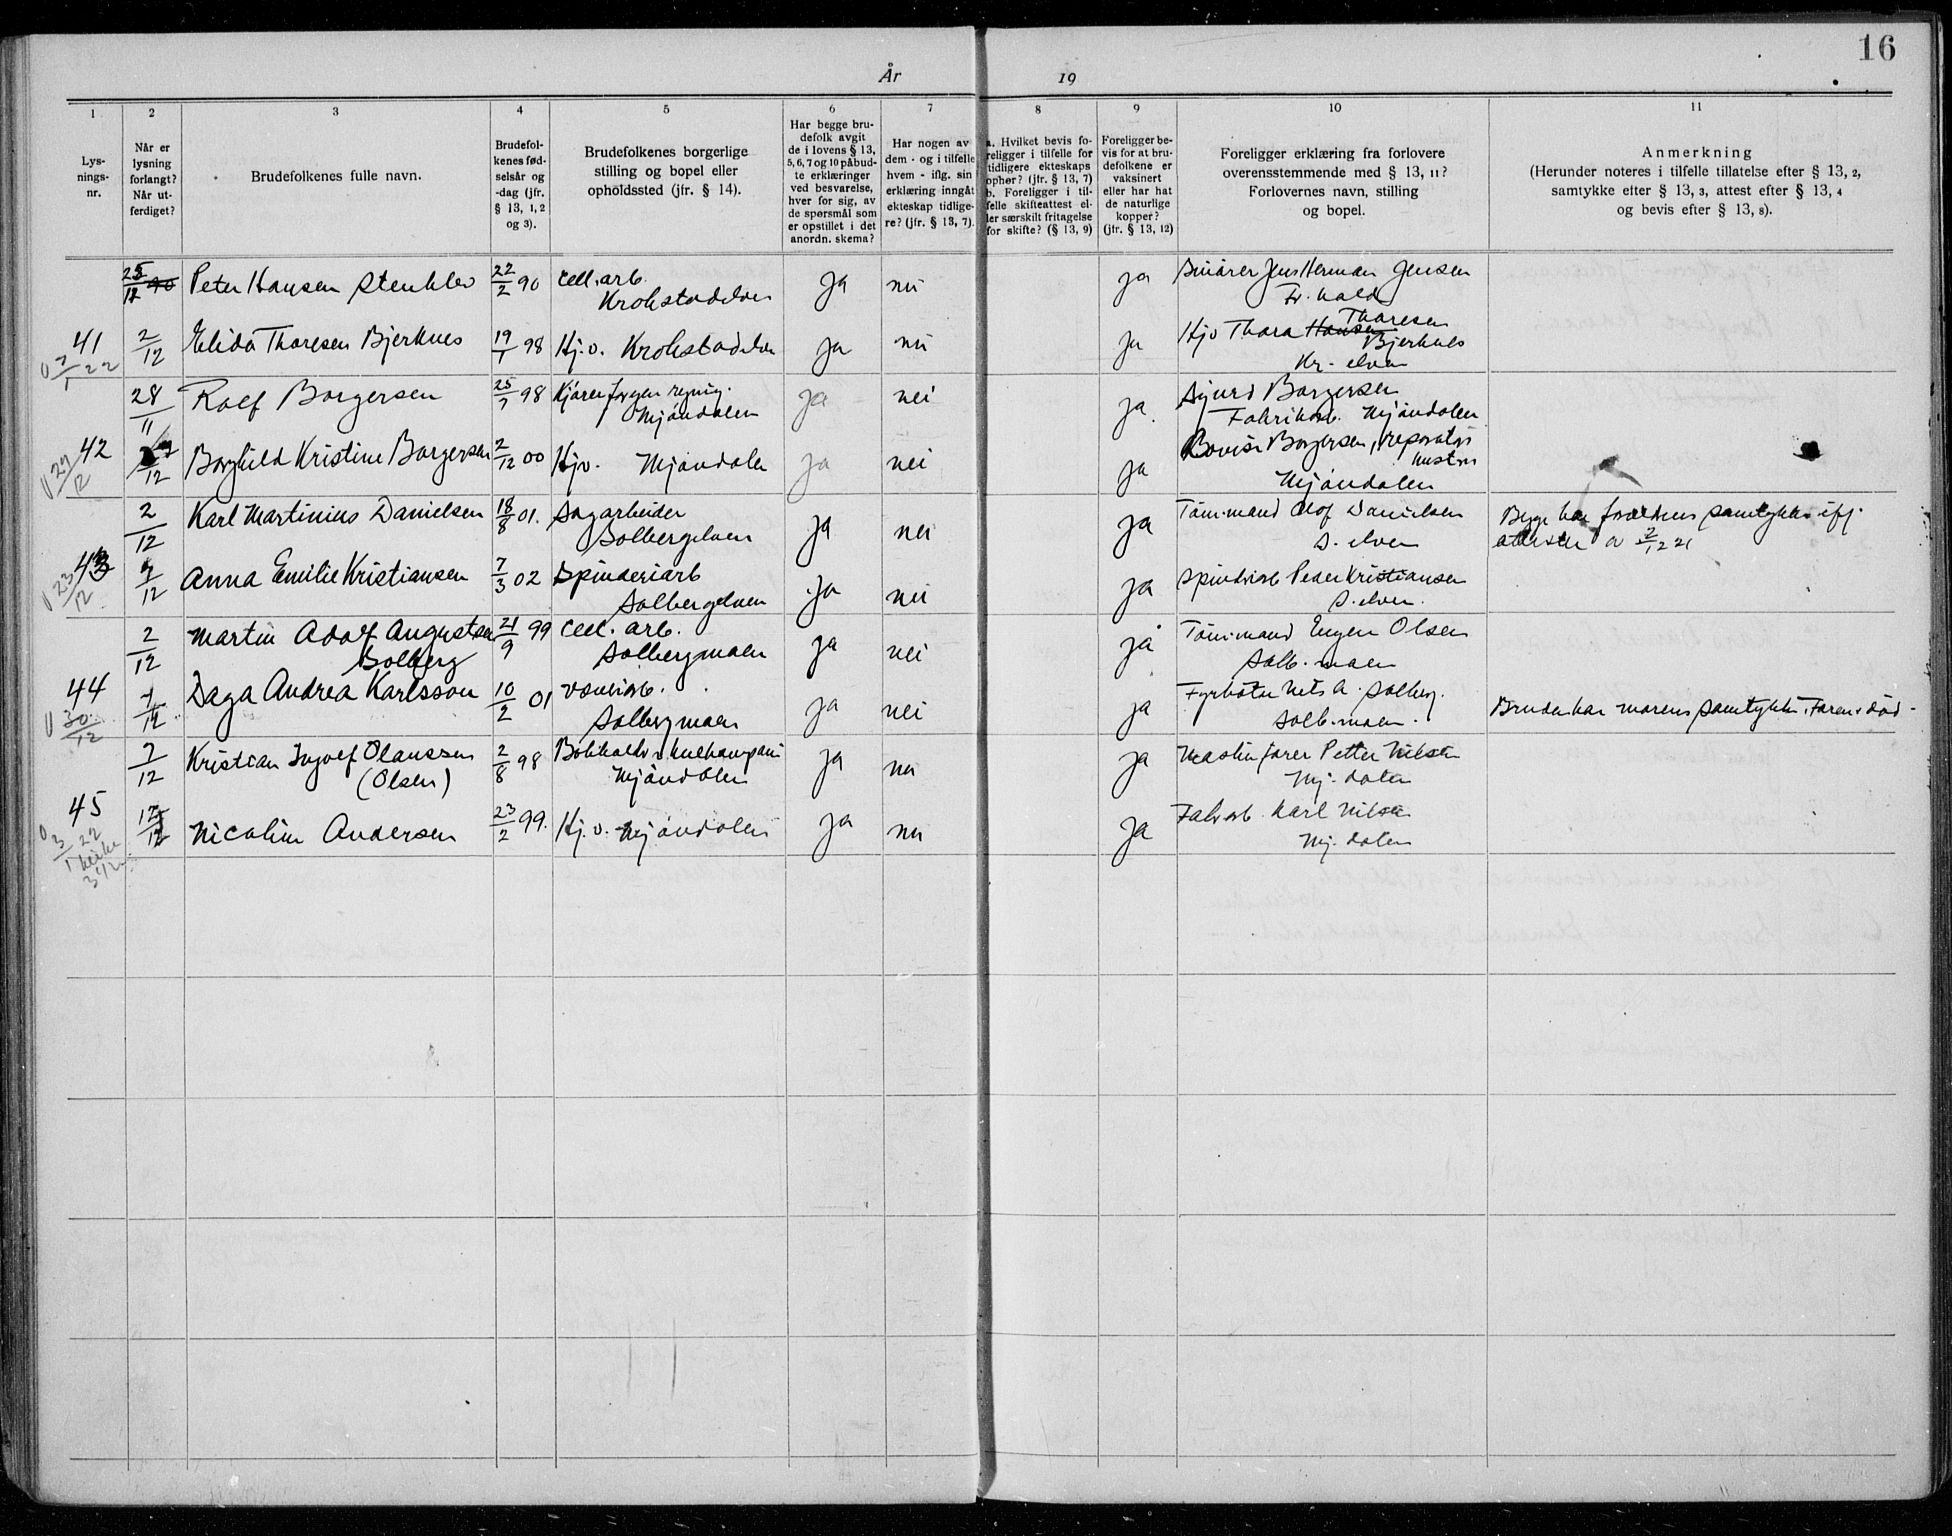 16
År 19
1 2 3 4 5 6 7 8 9 10 11
Lys-
nings-
nr.
Når er
lysning
forlangt?
Når ut-
ferdiget?
Brudefolkenes fulle navn.
Brudefol-
kenes fød-
selsår og
-dag (jfr.
§ 13, 1, 2
og 3).
Brudefolkenes borgerlige
stilling og bopel eller
opholdssted (jfr. § 14).
Har begge bru-
defolk avgit
de i lovens § 13,
5, 6, 7 og 10 påbud-
te erklæringer
ved besvarelse,
hver for sig, av
de spørsmål som
er opstillet i det
anordn. skema?
Har nogen av
dem - og i tilfelle
hvem - iflg. sin
erklæring inngått
ekteskap tidlige-
re? (jfr. § 13, 7).
a. Hvilket bevis fo-
religger i tilfelle for
tidligere ekteskaps
ophør? (jfr. § 13, 7)
b. Foreligger i til-
felle skifteattest el-
ler særskilt fritagelse
for skifte? (§ 13, 9)
Foreligger be-
vis for at bru-
defolkene er
vaksinert
eller har hat
de naturlige
kopper?
(jfr. § 13, 12)
Foreligger erklæring fra forlovere
overensstemmende med § 13, 11?
Forlovernes navn, stilling
og bopel.
Anmerkning
(Herunder noteres i tilfelle tillatelse efter § 13, 2,
samtykke efter § 13, 3, attest efter § 13, 4
og bevis efter § 13, 8).
Peter Hansen Stenklev 22/2 90 Cell. arb. ja nei ja Jens Herman Jensen
Krokstadelven Fr. hald
41 2/12 Elida Thoresen Bjerknes 19/1 98 Hj.v. Krokstadelven ja nei ja Hjv Thora Hansen Thoresen
Bjerknes
Kr. elven
28/11 Rolf Borgersen 25/7 98 ja nei ja Sjurd Borgersen
Mjøndalen Fabrikarb. Mjøndalen
42 Borghild Kristine Borgersen 2/12 00 Hjv. Mjøndalen ja nei ja Borgersen, reparatørs
hustru
Mjøndalen
2/12 Karl Martinius Danielsen 18/8 01. Sagarbeider ja nei ja Tømmermand Olof Danielsen Begge har forældrenes samtykke ifj.
Solbergelven S. elven attester av 2/12 21
43 Anna Emilie Kristiansen 7/3 02 Spinderiarb ja nei ja Spinderiarb Peder Kristiansen
23/12 Solbergelven S. elven.
2/12 Martin Adolf Augustsen 21/9 99 Cell. arb. ja nei ja Tøm.mand Eugen Olsen
Solberg Solbergmoen Solb. moen
44 7/12 Daga Andrea Karlsson 10/2 01 Væveriarb. ja nei ja Fyrbøter Nils A. Solberg.
30/12 Solbergmoen Solb. moen. Bruden har morens samtykke. Faren død.
7/12 Kristian Ingolf Olaussen 2/8 98 Bokholder ja nei ja Maskinfører Petter Nilsen
(Olsen) Mjøndalen Mj. dalen
45 Nicoline Andersen 23/2 99. Hj.v. Mjøndalen ja nei ja Fabr.arb. Karl Nilsen
Mj. dalen